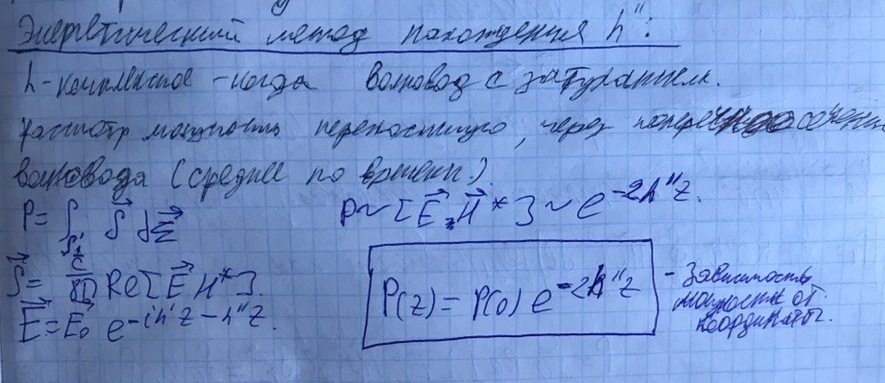 Энергетический метод нахождения h":
h - комплексное - когда волновод с затуханием.
рассмотр мощность переносимую, через поперечное сечение
волновода (среднее по времени).
P = ∫ S⃗ dΣ⃗    P ~ [E⃗, H⃗*] ~ e^{-2h"z}.
S⃗ = c/8π Re[E⃗ H*].
E⃗ = E⃗₀ e^{-ih'z - h"z}.
P(z) = P(0) e^{-2h"z}
- зависимость
мощности от
координаты.